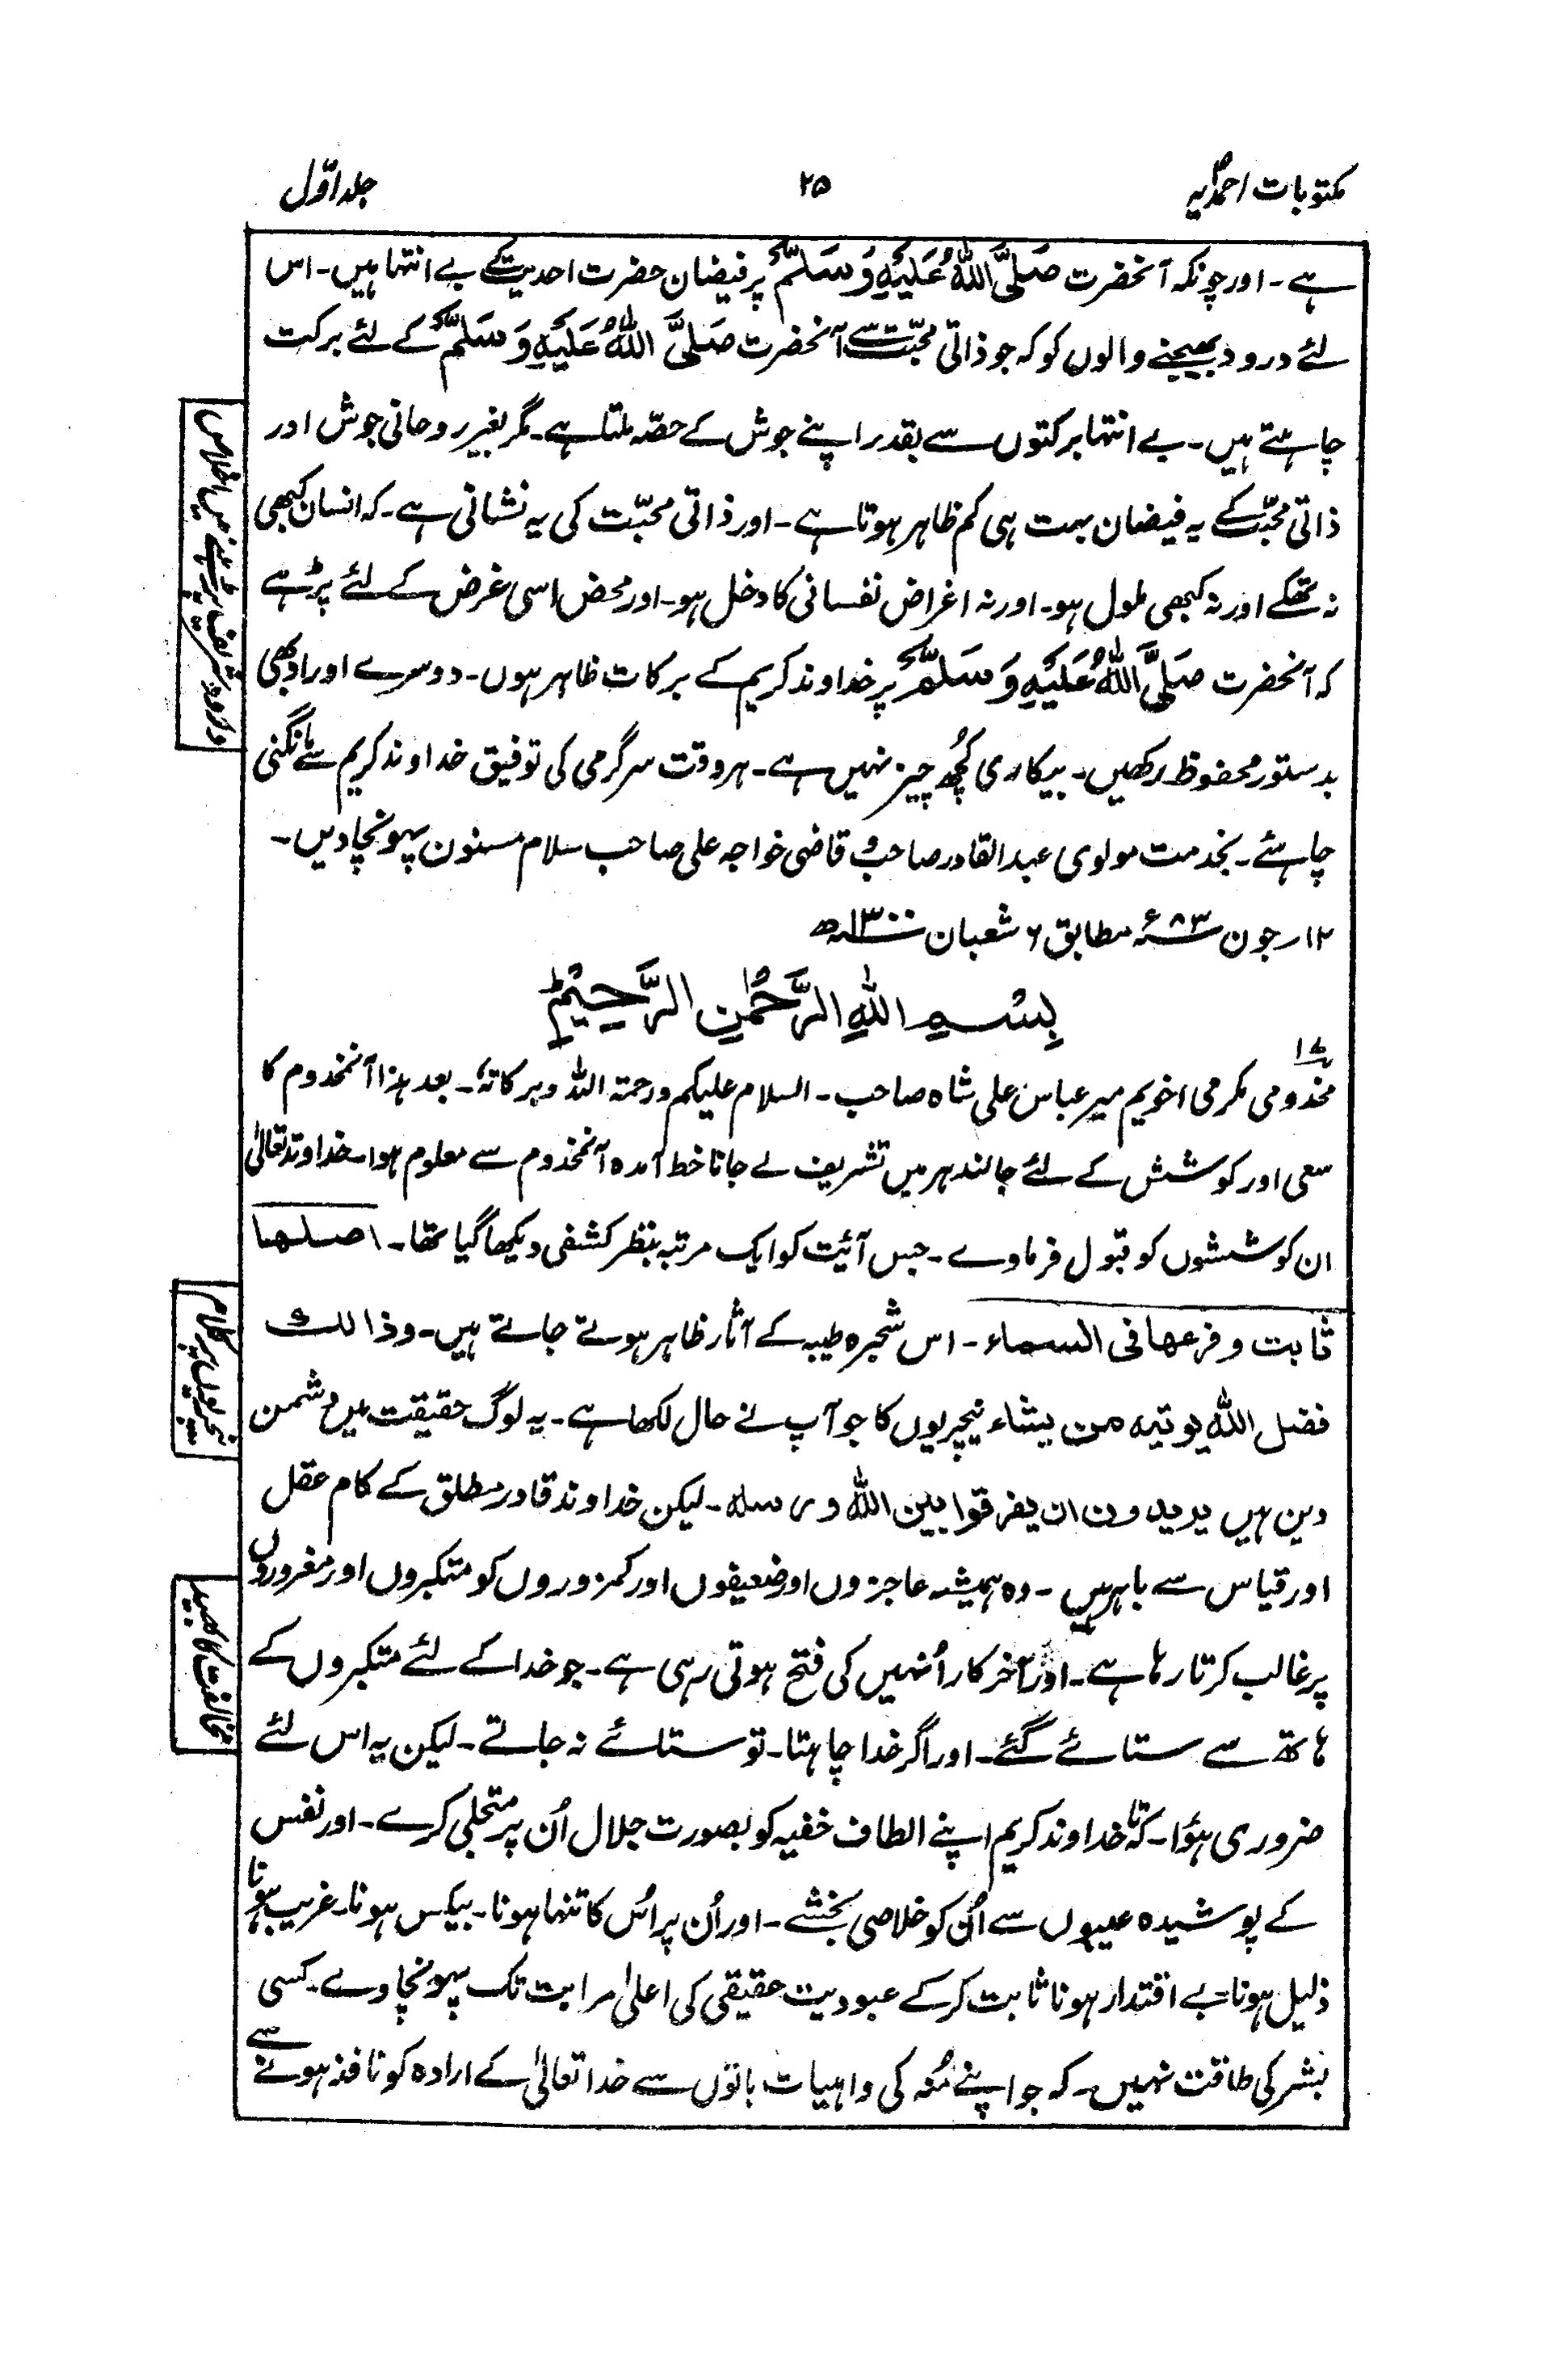 مکتوبات احمدیہ
۲۵
جلد اوّل
ہے۔ اور چونکہ آنحضرت صَلَّی اللّٰہُ عَلَیْہِ وَسَلَّمَ پر فیضان حضرت احدیت کے بے انتہا ہیں۔ اس
لئے درود بھیجنے والوں کو کہ جو ذاتی محبّت سے آنحضرت صَلَّی اللّٰہُ عَلَیْہِ وَسَلَّمَ کے لئے برکت
چاہتے ہیں۔ بے انتہا برکتوں سے بقدر اپنے جوش کے حصّہ ملتا ہے۔ مگر بغیر روحانی جوش اور
ذاتی محبّت کے یہ فیضان بہت ہی کم ظاہر ہوتا ہے۔ اور ذاتی محبّت کی یہ نشانی ہے۔ کہ انسان کبھی
نہ تھکے اور نہ کبھی ملول ہو۔ اور نہ اغراض نفسانی کا دخل ہو۔ اور محض اسی غرض کے لئے پڑہے
کہ آنحضرت صَلَّی اللّٰہُ عَلَیْہِ وَسَلَّمَ پر خداوند کریم کے برکات ظاہر ہوں۔ دوسرے اوراد بھی
بدستور محفوظ رکھیں۔ بیکاری کُچھ چیز نہیں ہے۔ ہر وقت سرگرمی کی توفیق خداوند کریم سے مانگنی
چاہئے۔ بخدمت مولوی عبدالقادر صاحب و قاضی خواجہ علی صاحب سلام مسنون پہونچادیں۔
۱۲؍ جون ۸۳ء مطابق ۶ شعبان ۱۳۰۰ھ
بِسْمِ اللّٰہِ الرَّحْمٰنِ الرَّحِیْمِ
۱۷
مخدومی مکرمی اخویم میر عباس علی شاہ صاحب۔ السلام علیکم ورحمۃ اللہ وبرکاتہٗ۔ بعد ہذا آنمخدوم کا
سعی اور کوشش کے لئے جالندہر میں تشریف لے جانا خط آمدہ آنمخدوم سے معلوم ہوا۔ خداوند تعالیٰ
ان کوششوں کو قبول فرماوے۔ جس آئیت کو ایک مرتبہ بنظر کشفی دیکھا گیا تھا۔ اصلھا
ثابت و فرعھا فی السماء۔ اس شجرہ طیبہ کے آثار ظاہر ہوتے جاتے ہیں۔ وذالک
فضل اللّٰہ یوتیہ من یشاء نیچریوں کا جو آپ نے حال لکھا ہے۔ یہ لوگ حقیقت میں دشمن
دین ہیں یریدون ان یفرقوا بین اللّٰہ ورسلہ۔ لیکن خداوند قادر مطلق کے کام عقل
اور قیاس سے باہر ہیں۔ وہ ہمیشہ عاجزوں اور ضعیفوں اور کمزوروں کو متکبروں اور مغروروں
پر غالب کرتا رہا ہے۔ اور آخر کار اُنہیں کی فتح ہوتی رہی ہے۔ جو خدا کے لئے متکبروں کے
ہاتھ سے ستائے گئے۔ اور اگر خدا چاہتا۔ تو ستائے نہ جاتے۔ لیکن یہ اس لئے
ضروری ہؤا۔ کہ تا خداوند کریم اپنے الطاف خفیہ کو بصورت جلال اُن پر متجلی کرے۔ اور نفس
کے پوشیدہ عیبوں سے اُن کو خلاصی بخشے۔ اور اُن پر اُس کا تنہا ہونا۔ بیکس ہونا۔ غریب ہونا
ذلیل ہونا۔ بے اقتدار ہونا ثابت کرکے عبودیت حقیقی کی اعلیٰ مراتب تک پہونچاوے۔ کسی
بشر کی طاقت نہیں۔ کہ جو اپنے مُنہ کی واہیات باتوں سے خدا تعالیٰ کے ارادہ کو نافذ ہونے سے
درود شریف پڑہنے میں اخلاص
نیچریوں پر کلام
مخالفت کا بھید